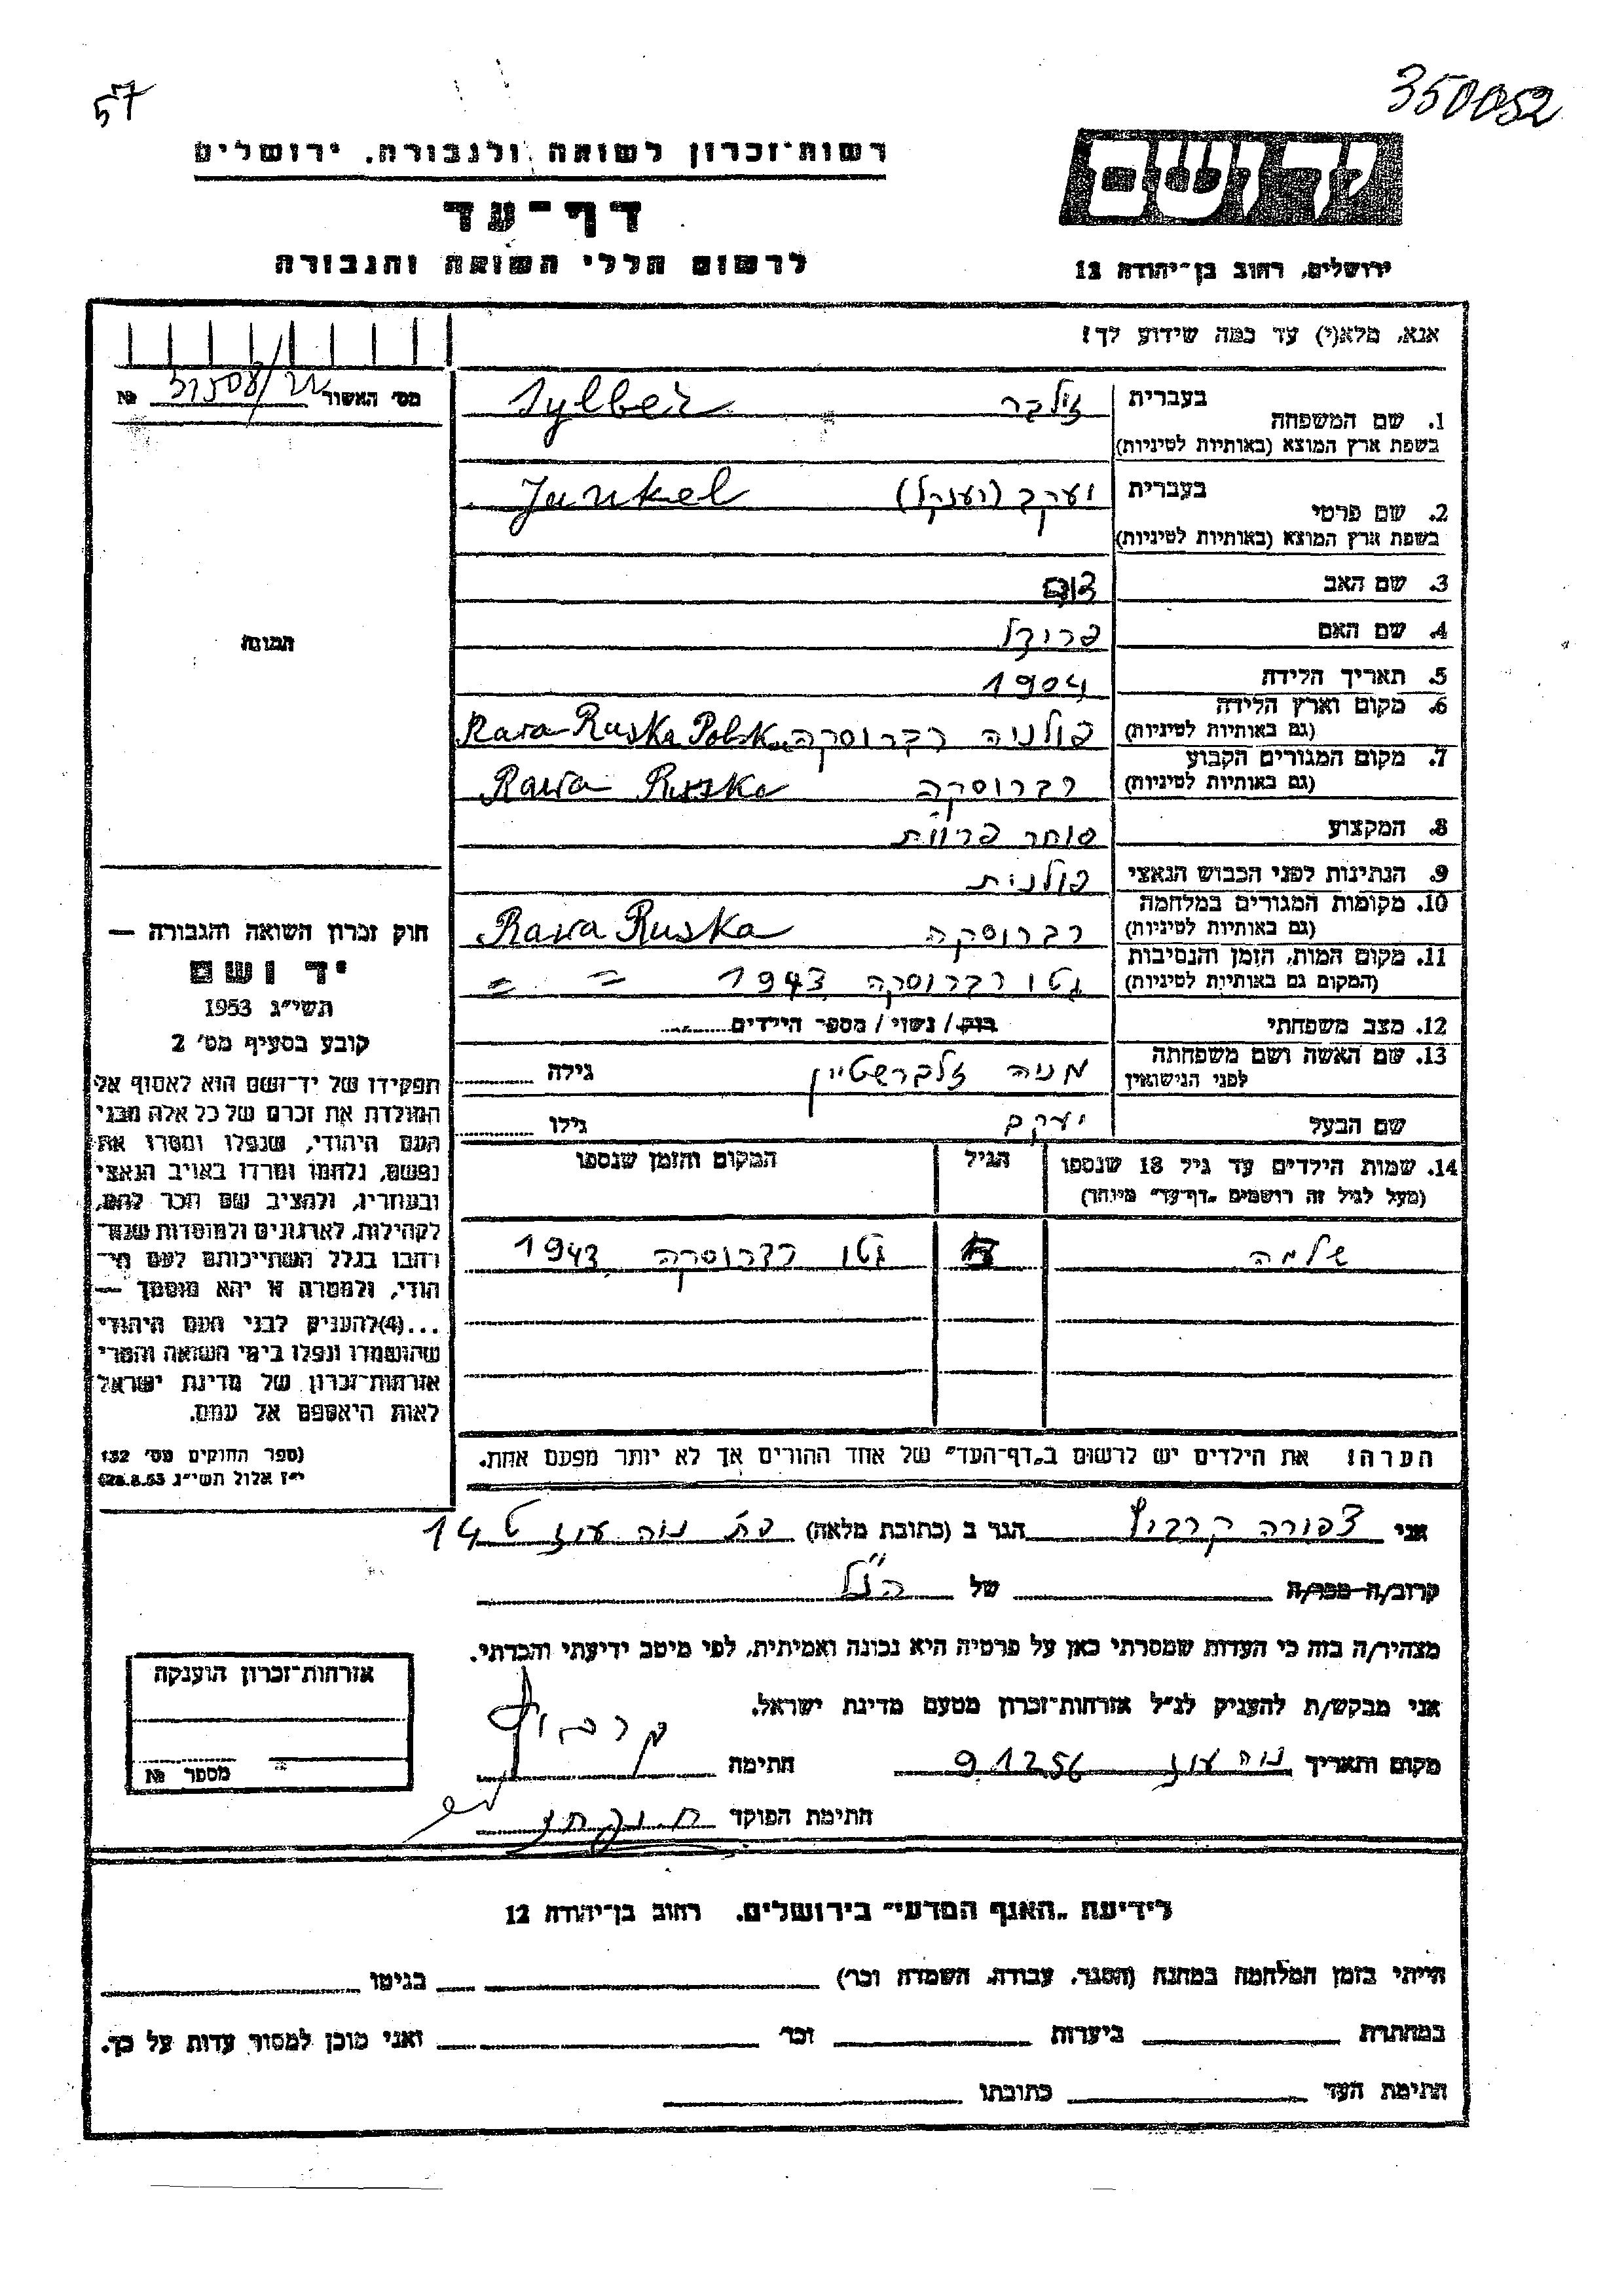 57
350052
רשות־זכרון לשואה ולגבורה. ירושלים
דף־עד
לרשום חללי השואה והגבורה
יד ושם
ירושלים, רחוב בן־יהודה 12
אנא, מלא(י) עד כמה שידוע לך!
מס׳ האשור № 37508/22
1. שם המשפחה בעברית זילבר Sylber
בשפת ארץ המוצא (באותיות לטיניות)
2. שם פרטי בעברית יעקב (יענקל) Jankel
בשפת ארץ המוצא (באותיות לטיניות)
3. שם האב
4. שם האם פרידל
5. תאריך הלידה 1904
6. מקום וארץ הלידה (גם באותיות לטיניות) פולניה רברוסקה Rava Ruska Polska
7. מקום המגורים הקבוע (גם באותיות לטיניות) רברוסקה Rawa Ruska
8. המקצוע סוחר פרוות
9. הנתינות לפני הכבוש הנאצי פולנית
10. מקומות המגורים במלחמה (גם באותיות לטיניות) רברוסקה Rawa Ruska
11. מקום המות, הזמן והנסיבות (המקום גם באותיות לטיניות) גטו רברוסקה 1943 = =
12. מצב משפחתי רווק/ נשוי/ מספר הילדים
13. שם האשה ושם משפחתה לפני הנישואין מניה זילברשטיין גילה
שם הבעל יעקב גילו
14. שמות הילדים עד גיל 18 שנספו
(מעל לגיל זה רושמים „דף־עד״ מיוחד)
הגיל
המקום והזמן שנספו
שלמה גטו רברוסקה 1943
הערה: את הילדים יש לרשום ב„דף־העד״ של אחד ההורים אך לא יותר מפעם אחת.
התמונה
חוק זכרון השואה והגבורה —
יד ושם
תשי״ג 1953
קובע בסעיף מס׳ 2
תפקידו של יד־ושם הוא לאסוף אל
המולדת את זכרם של כל אלה מבני
העם היהודי, שנפלו ומסרו את
נפשם, נלחמו ומרדו באויב הנאצי
ובעוזריו, ולהציב שם וזכר להם,
לקהילות, לארגונים ולמוסדות שנח־
רבו בגלל השתייכותם לעם הי־
הודי, ולמטרה זו יהא מוסמך —
...(4)להעניק לבני העם היהודי
שהושמדו ונפלו בימי השואה והמרי
אזרחות־זכרון של מדינת ישראל
לאות היאספם אל עמם.
(ספר החוקים מס׳ 132
י״ז אלול תשי״ג 28.8.53)
אני צפורה קרביץ הגר ב (כתובת מלאה) נוה עוז 14
קרוב/ה מכר/ה של הנ״ל
מצהיר/ה בזה כי העדות שמסרתי כאן על פרטיה היא נכונה ואמיתית, לפי מיטב ידיעתי והכרתי.
אני מבקש/ת להעניק לנ״ל אזרחות־זכרון מטעם מדינת ישראל.
מקום ותאריך נוה עוז 9.12.56 חתימה קרביץ
חתימת הפוקד
אזרחות־זכרון הוענקה
מספר №
לידיעת „האגף המדעי״ בירושלים. רחוב בן־יהודה 12
הייתי בזמן המלחמה במחנה (הסגר, עבודה, השמדה וכו׳) בגיטו
במחתרת ביערות וכו׳ ואני מוכן למסור עדות על כך.
חתימת העד כתובתו